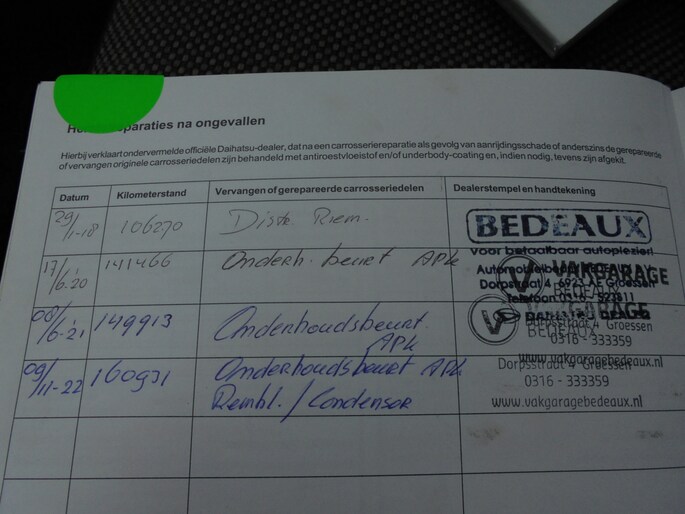 reparaties na ongevallen
Hierbij verklaart ondervermelde officiële Daihatsu-dealer, dat na een carrosseriereparatie als gevolg van aanrijdingsschade of anderszins de gerepareerde
of vervangen originele carrosseriedelen zijn behandeld met antiroestvloeistof en/of underbody-coating en, indien nodig, tevens zijn afgekit.
Datum Kilometerstand Vervangen of gerepareerde carrosseriedelen Dealerstempel en handtekening
29/1-18 106270 Distr. Riem.
BEDEAUX
voor betaalbaar autoplezier!
17/6-20 141466 Onderh. beurt APk
Automobielbedrijf BEDEAUX
Dorpstraat 4 6923 AE Groessen
Telefoon 0316 - 523811
VAKGARAGE
BEDEAUX
08/6-21 149913 Onderhoudsbeurt.
APk
VAKGARAGE
BEDEAUX
Dorpsstraat 4 Groessen
0316 - 333359
www.vakgaragebedeaux.nl
09/11-22 160931 Onderhoudsbeurt APk
Rembl. / Condensor
Dorpsstraat 4 Groessen
0316 - 333359
www.vakgaragebedeaux.nl